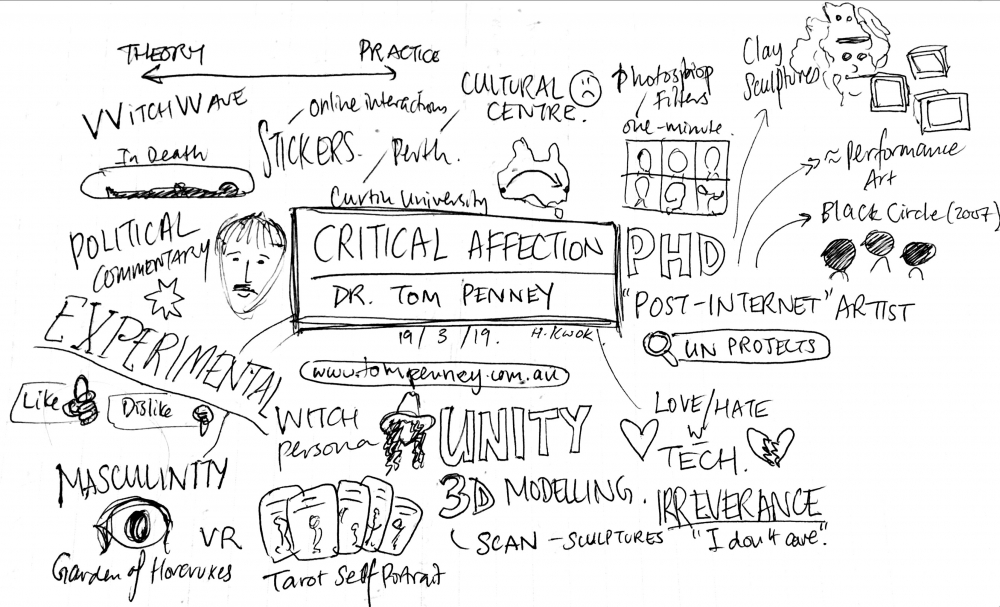 THEORY
PRACTICE
WITCHWAVE
online interactions
CULTURAL
CENTRE.
Photoshop
Filters
Clay
Sculptures
STICKERS.
Perth.
one-minute.
In Death
Curtin University
≈ performance
Art
BLACK CIRCLE (2007)
POLITICAL
COMMENTARY
CRITICAL AFFECTION
DR. TOM PENNEY
PHD
"POST-INTERNET" ARTIST
19/3/19.
H.Kwok
UN PROJECTS
EXPERIMENTAL
www.tompenney.com.au
Like
Dislike
WITCH
persona
UNITY
LOVE/HATE
w
TECH.
MASCULINITY
3D MODELLING.
IRREVERANCE
"I don't care".
SCAN - SCULPTURES
VR
Garden of Horcruxes
Tarot Self Portrait